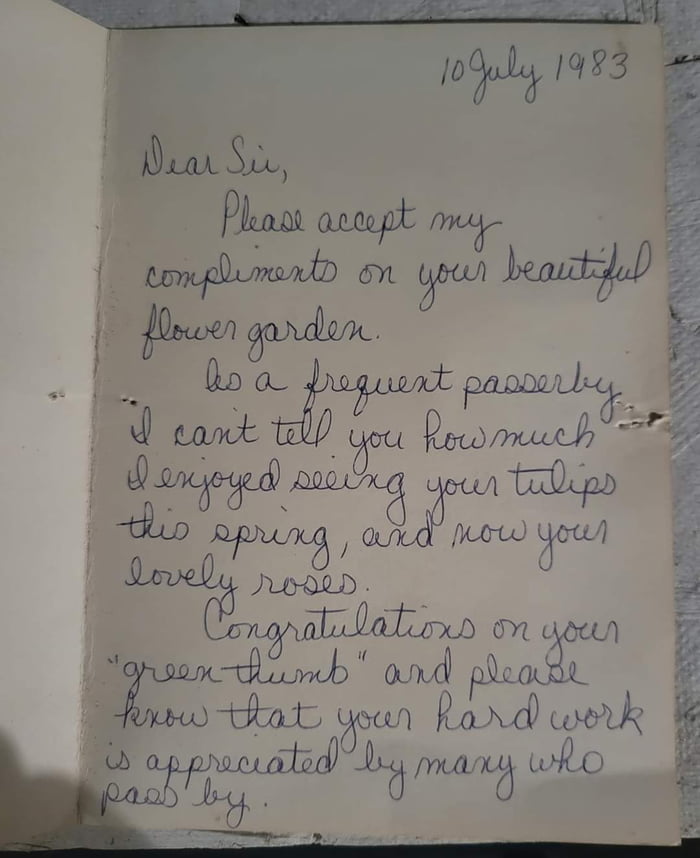 10 July 1983
Dear Sir,
Please accept my
compliments on your beautiful
flower garden.
As a frequent passerby
I can't tell you how much
I enjoyed seeing your tulips
this spring, and now your
lovely roses.
Congratulations on your
"green thumb" and please
know that your hard work
is appreciated by many who
pass by.